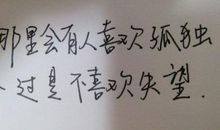 那里会有人喜欢孤独
过是不喜欢失望.